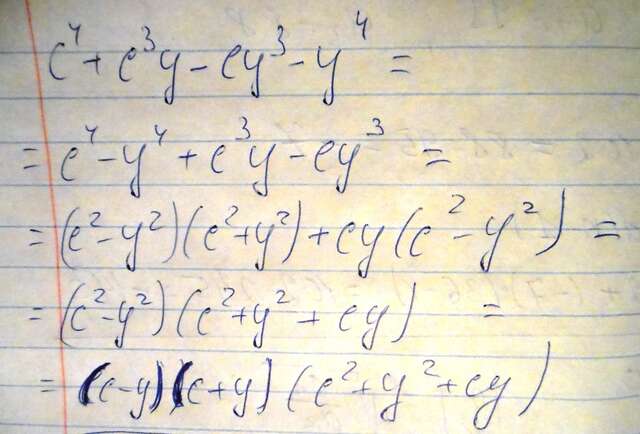 c⁴ + c³y - cy³ - y⁴ =
= c⁴ - y⁴ + c³y - cy³ =
= (c² - y²)(c² + y²) + cy(c² - y²) =
= (c² - y²)(c² + y² + cy) =
= (c - y)(c + y)(c² + y² + cy)